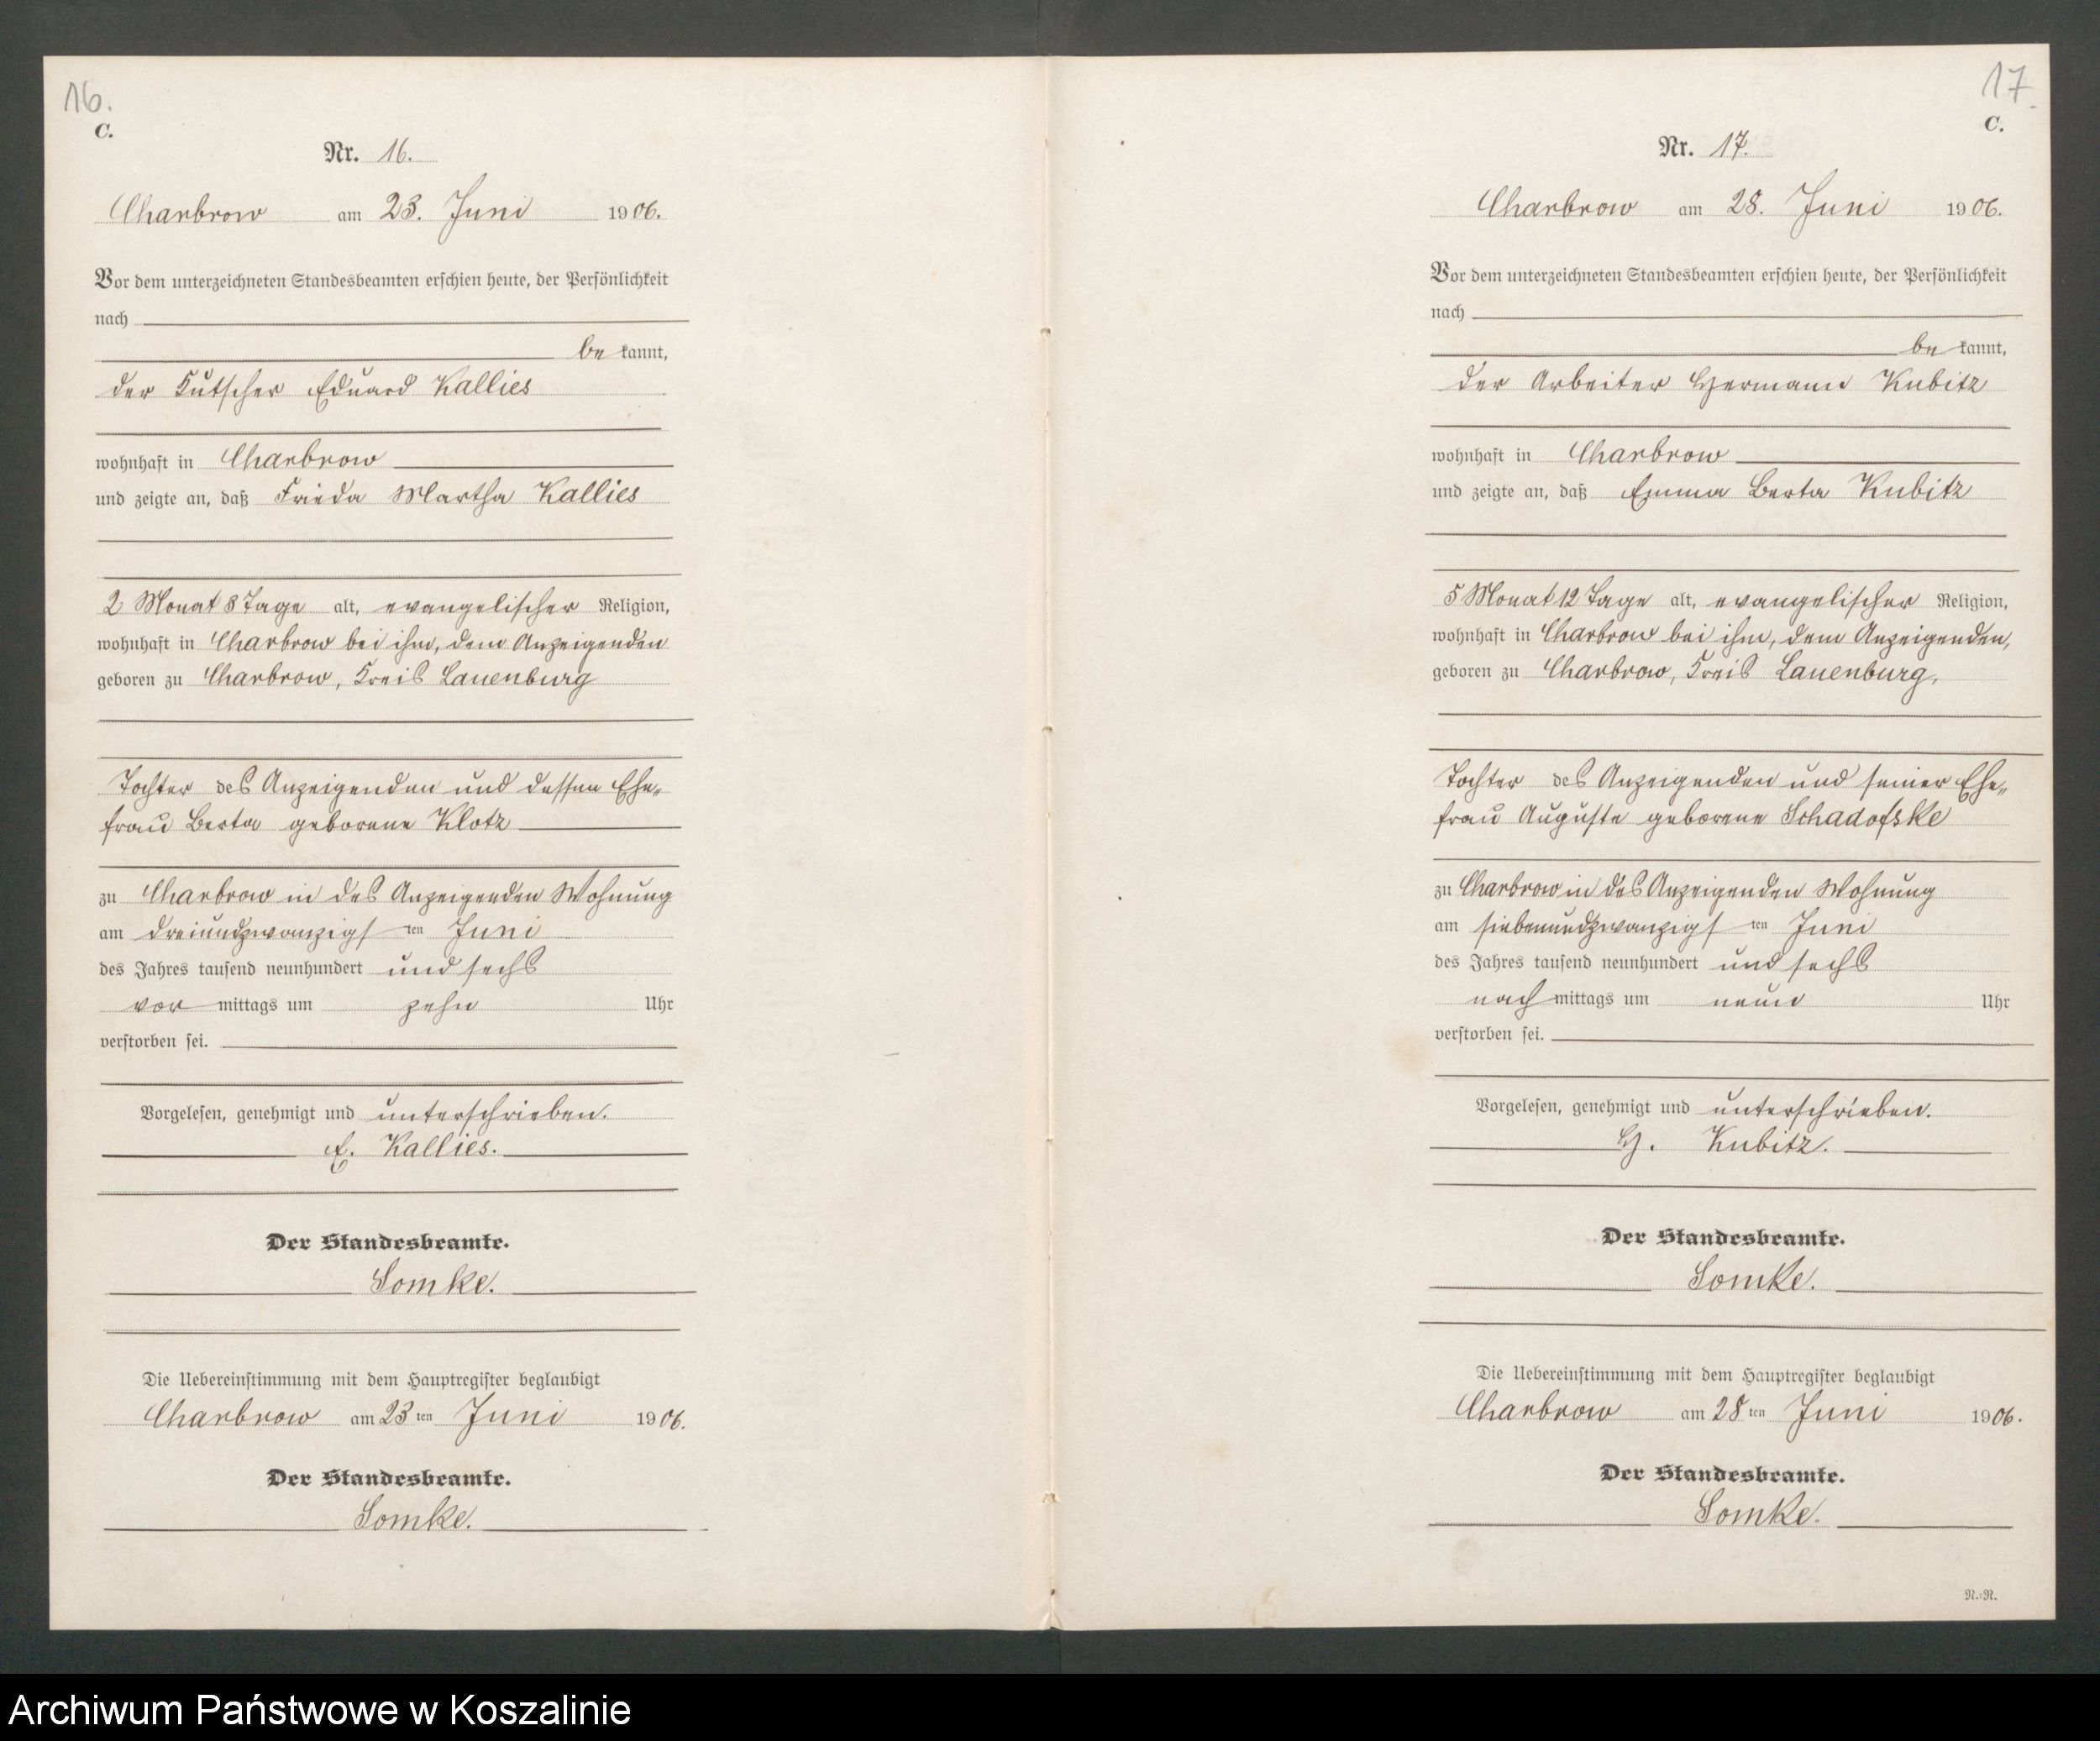 16.
C.
Nr. 16.
Charbrow am 23. Juni 1906.
Vor dem unterzeichneten Standesbeamten erschien heute, der Persönlichkeit
nach
be kannt,
der Kutscher Eduard Kallies
wohnhaft in Charbrow
und zeigte an, daß Frieda Martha Kallies
2 Monat 8 Tage alt, evangelischer Religion,
wohnhaft in Charbrow bei ihm, dem Anzeigenden
geboren zu Charbrow, Kreis Lauenburg
Tochter des Anzeigenden und dessen Ehe„
frau Berta geborene Klotz
zu Charbrow in des Anzeigenden Wohnung
am dreiundzwanzigsten Juni
des Jahres tausend neunhundert und sechs
vor mittags um zehn Uhr
verstorben sei.
Vorgelesen, genehmigt und unterschrieben.
E. Kallies.
Der Standesbeamte.
Somke.
Die Uebereinstimmung mit dem Hauptregister beglaubigt
Charbrow am 23ten Juni 1906.
Der Standesbeamte.
Somke.
17.
C.
Nr. 17.
Charbrow am 28. Juni 1906.
Vor dem unterzeichneten Standesbeamten erschien heute, der Persönlichkeit
nach
be kannt,
der Arbeiter Hermann Kubitz
wohnhaft in Charbrow
und zeigte an, daß Emma Berta Kubitz
5 Monat 12 Tage alt, evangelischer Religion,
wohnhaft in Charbrow bei ihm, dem Anzeigenden,
geboren zu Charbrow, Kreis Lauenburg,
Tochter des Anzeigenden und seiner Ehe„
frau Auguste geborene Schadofske
zu Charbrow in des Anzeigenden Wohnung
am siebenundzwanzigsten Juni
des Jahres tausend neunhundert und sechs
nach mittags um neun Uhr
verstorben sei.
Vorgelesen, genehmigt und unterschrieben.
H. Kubitz.
Der Standesbeamte.
Somke.
Die Uebereinstimmung mit dem Hauptregister beglaubigt
Charbrow am 28ten Juni 1906.
Der Standesbeamte.
Somke.
N.-N.
Archiwum Państwowe w Koszalinie